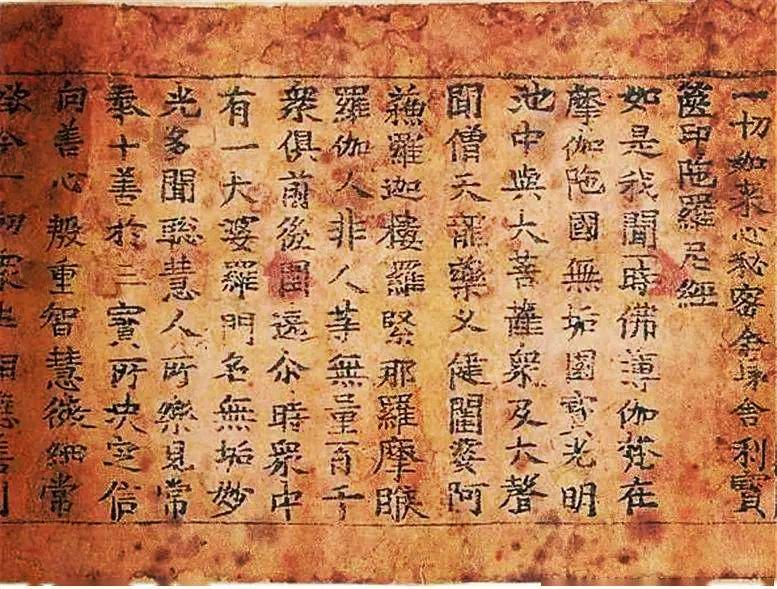 一切如來心秘密全身舍利寶
篋印陁羅尼經
如是我聞一時佛薄伽梵在
摩伽陁國無垢園寶光明
池中與大菩薩衆及大聲
聞僧天龍藥叉健闥婆阿
蘇羅迦樓羅緊那羅摩睺
羅伽人非人等無量百千
衆俱前後圍遶尒時衆中
有一大婆羅門名無垢妙
光多聞聡慧人所樂見常
奉十善於三寶所決定信
向善心殷重智慧微細常
欲令一切衆生相應善利